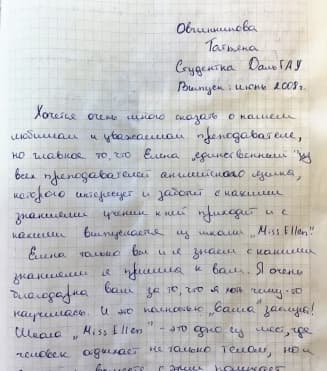 Овчинникова
Татьяна
Студентка ДальГАУ
Выпуск: июнь 2008г.
Хочется очень много сказать о нашем
любимом и уважаемом преподавателе,
но главное то, что Елена „единственный" из
всех преподавателей английского языка,
которого интересует и заботит с какими
знаниями ученик к ней приходит и с
какими выпускается из школы „Miss Ellen".
Елена только вы и я знаем с какими
знаниями я пришла к вам. Я очень
благодарна вам за то, что я хоть чему-то
научилась. И это полностью „ваша" заслуга!
Школа „Miss Ellen" - это одно из мест, где
человек отдыхает не только телом, но и
вместе с этим получает